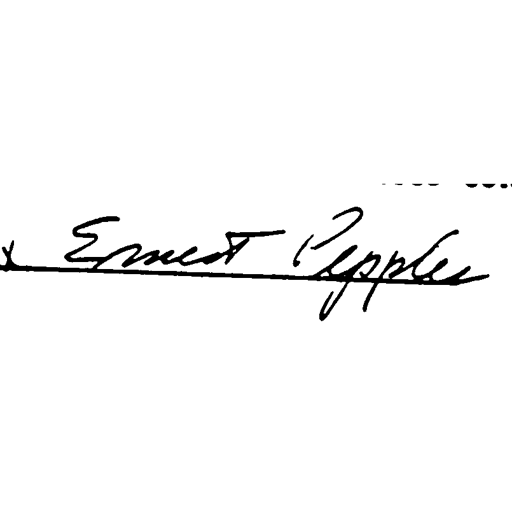 x Ernest Pepples